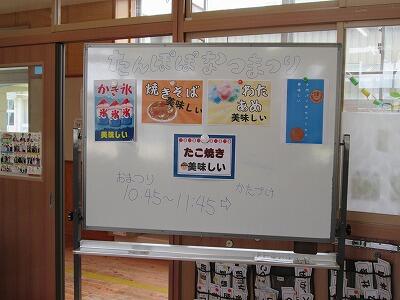 たんぽぽなつまつり
かき氷
氷 氷 氷
美味しい
焼きそば
美味しい
わた
あめ
美味しい
たこ焼き
美味しい
おまつり
10:45～11:45⇨
かたづけ